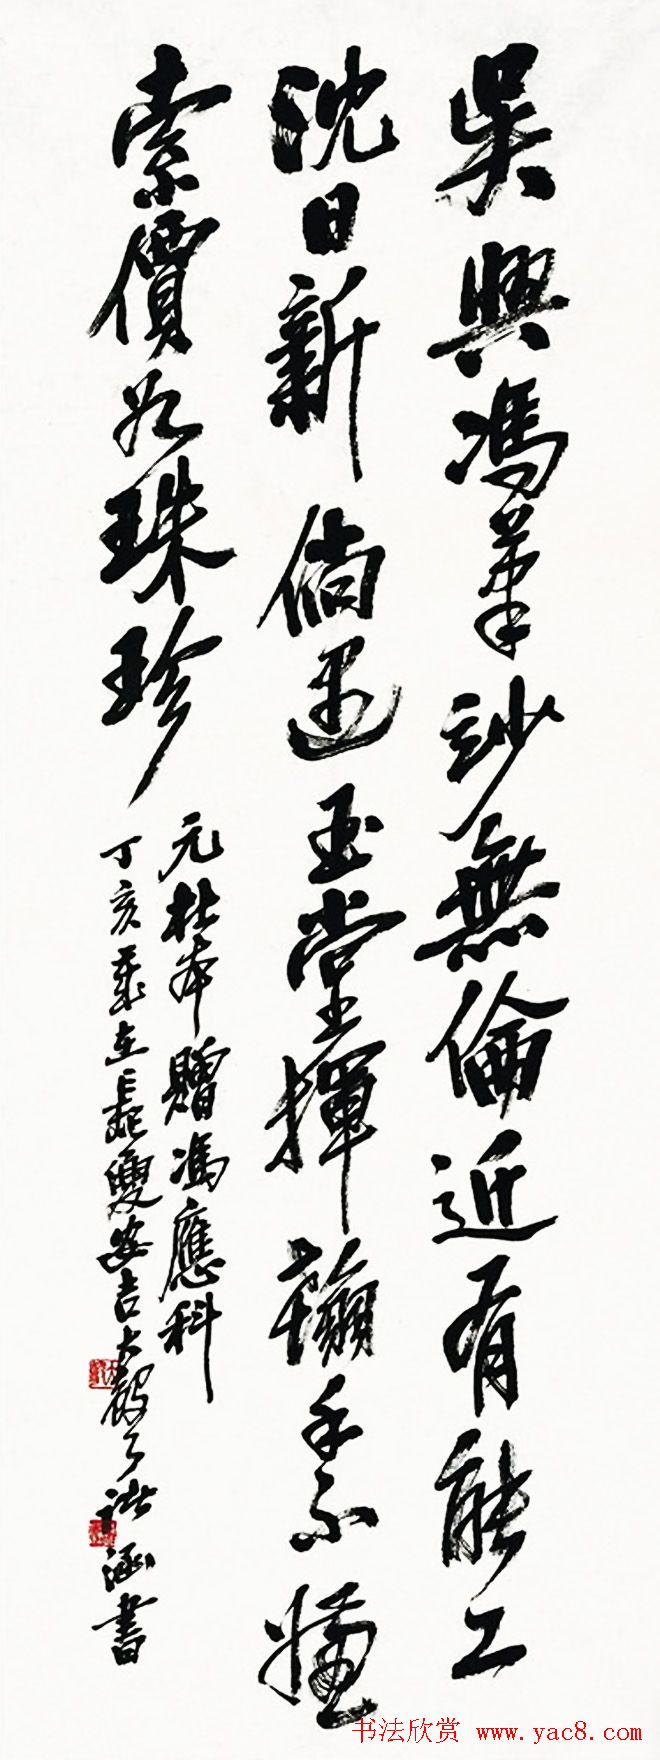 吳興馮筆妙無倫近有能工
沈日新倘遇玉堂揮翰手不
索價如珠珍
元杜本贈馮應科
丁亥 安吉 諸涵書
书法欣赏 www.yac8.com